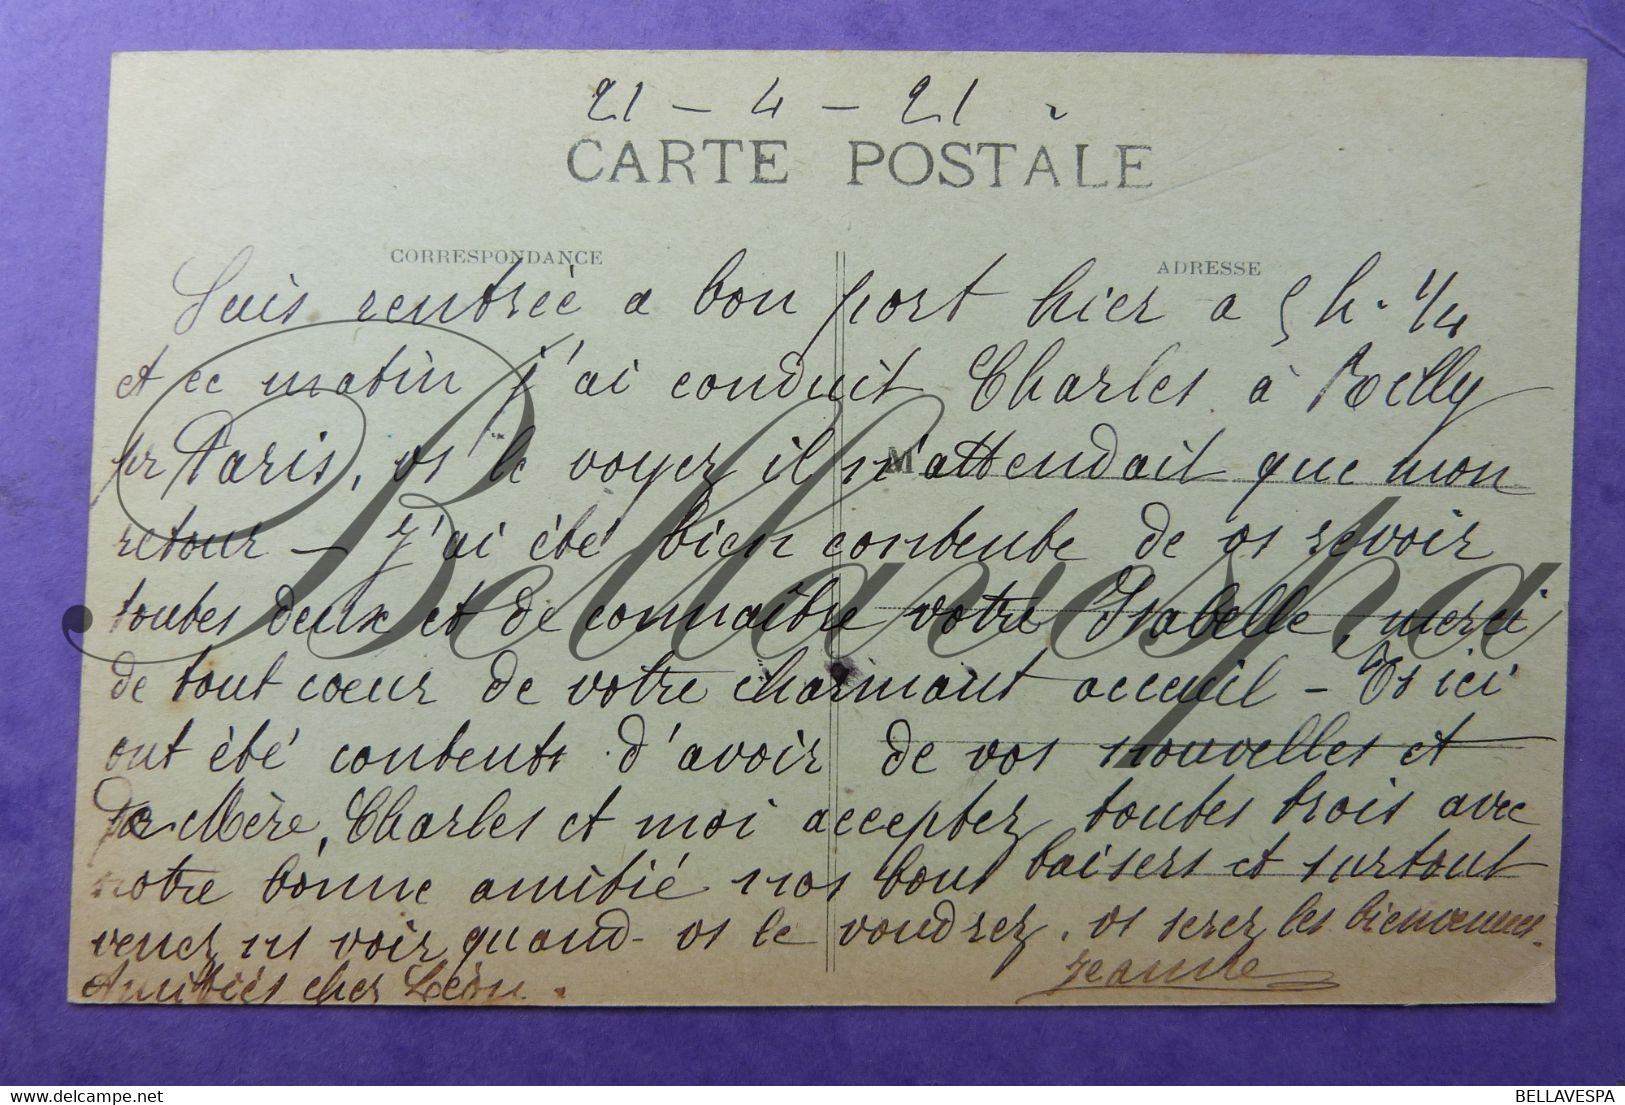 21 - 4 - 21
CARTE POSTALE
CORRESPONDANCE
ADRESSE
Suis rentrée a bon port hier a 5 h. 1/4
et ce matin j'ai conduit Charles à Relly
pr Paris, vs le voyez il n'attendait que mon
M
retour - J'ai été bien contente de vs revoir
toutes deux et de connaître votre Isabelle, merci
de tout coeur de votre charmant accueil - Ts ici
ont été contents d'avoir de vos nouvelles et
Mère, Charles et moi acceptez toutes trois avec
notre bonne amitié nos bons baisers et surtout
venez ns voir quand vs le voudrez. vs serez les bienvenues.
Amitiés chez Léon. Jeanne
Bellavespa
BELLAVESPA